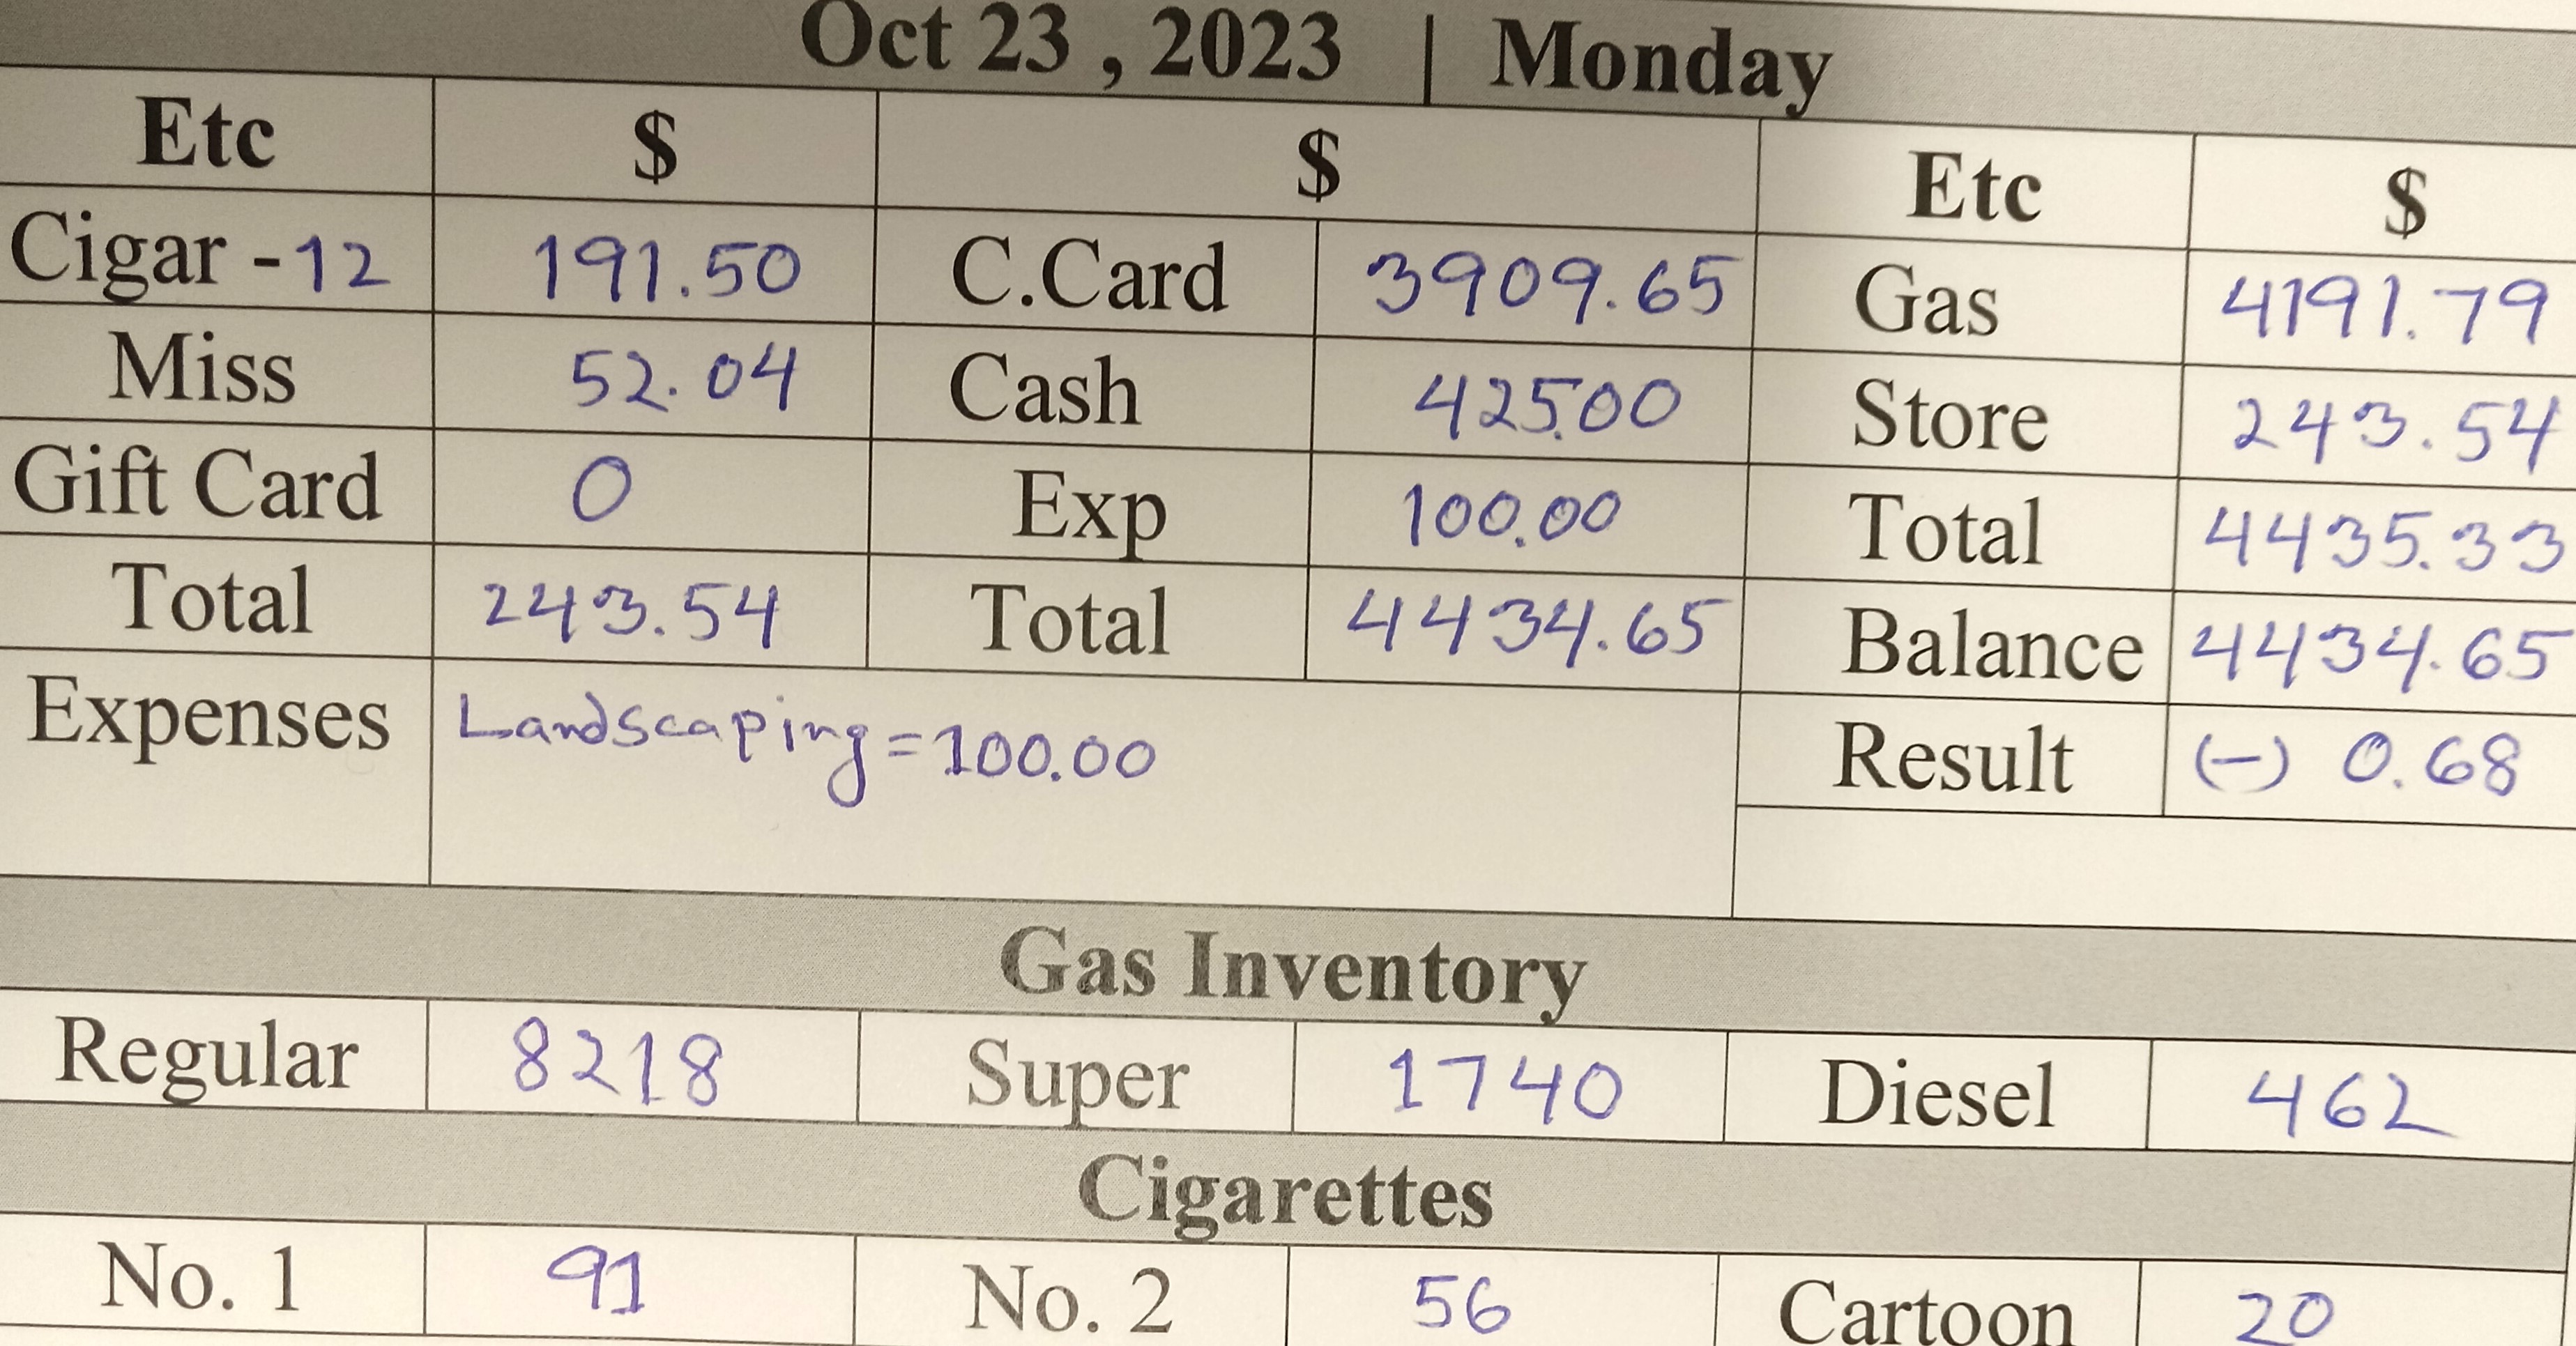 Oct 23 , 2023 | Monday
Etc $ $ Etc $
Cigar -12 191.50 C.Card 3909.65 Gas 4191.79
Miss 52.04 Cash 425.00 Store 243.54
Gift Card 0 Exp 100.00 Total 4435.33
Total 243.54 Total 4434.65 Balance 4434.65
Expenses Landscaping = 100.00 Result (-) 0.68
Gas Inventory
Regular 8218 Super 1740 Diesel 462
Cigarettes
No. 1 91 No. 2 56 Cartoon 20